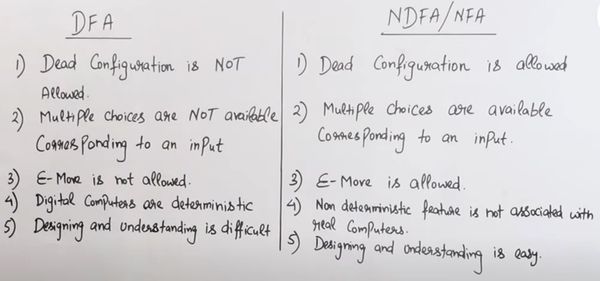 DFA
1) Dead Configuration is NOT
Allowed.
2) Multiple choices are NOT available
Corresponding to an input
3) E-Move is not allowed.
4) Digital Computers are deterministic
5) Designing and Understanding is difficult
NDFA/NFA
1) Dead Configuration is allowed
2) Multiple choices are available
Corresponding to an input.
3) E-Move is allowed.
4) Non deterministic feature is not associated with
real Computers.
5) Designing and understanding is easy.